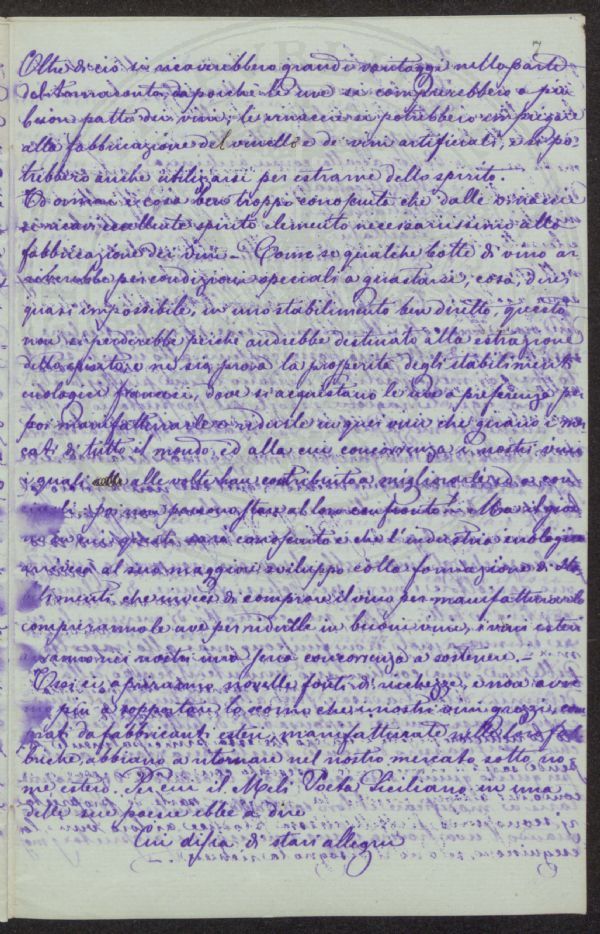 7
Oltre di ciò si ricaverebbero grandi vantaggi nella parte
del tornaconto, daposchè le uve si comprerebbero a più
buon patto dei vini; le vinaccie si potrebbero impiegare
alla fabbricazione del vinello e de' vini artificiali, e si po-
trebbero anche utilizzarsi per estrarne dello spirito.
Ed ormai è cosa ben troppo conosciuta che dalle vinaccie
si ricavi eccellente spirito elemento necessarissimo alla
fabbricazione dei vini. Come se qualche botte di vino ar
riverebbe per condizioni speciali a guastarsi, cosa, direi,
quasi impossibile, in uno stabilimento ben diretto, questo
non si perderebbe perchè andrebbe destinato alla estrazione
dello spirito, e ne sia prova la prosperità degli stabilimenti
enologici francesi, dove si acquistano le uve a preferenza per
poi manifatturarle e ridurle in quei vini che girano i mer
cati di tutto il mondo, ed alla cui concorrenza i nostri vini
i quali alle volte han contribuito a migliorarle ed a con
poi non possono stare al loro confronto. Ma il giorno
in cui questo sarà conosciuto e che l'industria enologica
arriverà al suo maggiore sviluppo colla formazione di sta
bilimenti, che invece di comprare il vino per manifatturarlo
compreranno le uve per ridurle in buoni vini, i vini esteri
avranno nei nostri una seria concorrenza a sostenere.
Così ci si apriranno novelle fonti di ricchezze, e non avre
mo più a sopportare lo scorno che i nostri vini grezzi, com
prati da fabbricanti esteri, manifatturate nelle loro fab
briche, abbiano a ritornare nel nostro mercato sotto no
me estero. Per cui il Meli Poeta Siciliano in una
delle sue poesie ebbe a dire
Cui disia di stari allegru